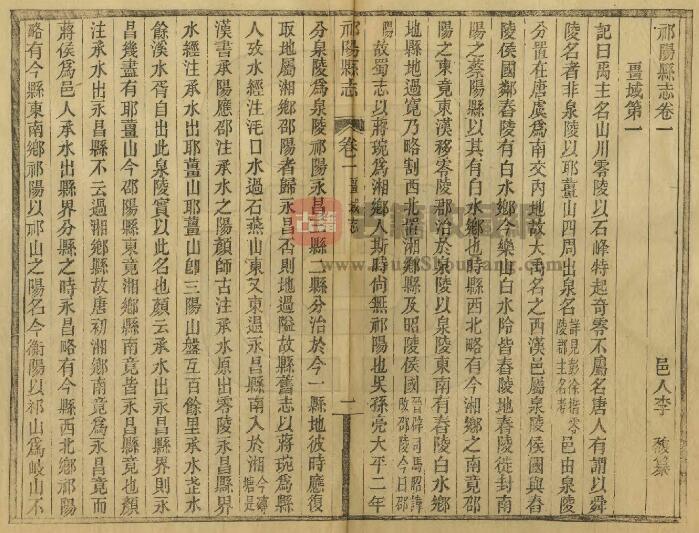 祁陽縣志卷一
邑人李馥纂
畺域第一
記曰禹主名山川零陵以石峰特起奇零不屬名唐人有謂以舜
陵名者非泉陵以耶畺山四周出泉名詳見彭徐楷零陵郡主名考邑由泉陵
分置在唐虞爲南交內地故大禹名之西漢邑屬泉陵侯國與舂
陵侯國鄰舂陵有白水鄉今樂山白水阾皆舂陵地舂陵徙封南
陽之蔡陽縣以其有白水鄉也時縣西北略有今湘鄉之南竟邵
陽之東竟東漢移零陵郡治於泉陵以泉陵東南有舂陵白水鄉
地縣地過寬乃略割西北置湘鄉縣及昭陵侯國晉辟司馬昭諱改邵陵今曰邵陽
故蜀志以蔣琬爲湘鄉人斯時尚無祁陽也吳孫亮大平二年
祁陽縣志 卷一 畺域志 一
分泉陵爲泉陵祁陽永昌三縣二縣分治於今一縣地彼時應復
取地屬湘鄉邵陽者歸永昌否則地過隘故縣舊志以蔣琬爲縣
人攷水經注沅口水過石燕山東又東過永昌縣南入於湘今譌塘是
漢書承陽應邵注承水之陽顏師古注承水原出零陵永昌縣界
水經注承水出耶畺山耶畺山卽三陽山盤互百餘里承水芷水
餘溪水胥自出此泉陵實以此名也顏云承水出永昌縣界則永
昌幾盡有耶畺山今邵陽縣東竟湘鄉縣南竟皆永昌縣竟也顏
注承水出永昌縣不云過湘鄉縣故唐初湘鄉南竟爲永昌竟而
蔣侯爲邑人承水出縣界分縣之時永昌略有今縣西北鄉祁陽
略有今縣東南鄉祁陽以祁山之陽名今衡陽以祁山爲岐山不
古籍收藏网
www.GujiShouCang.com